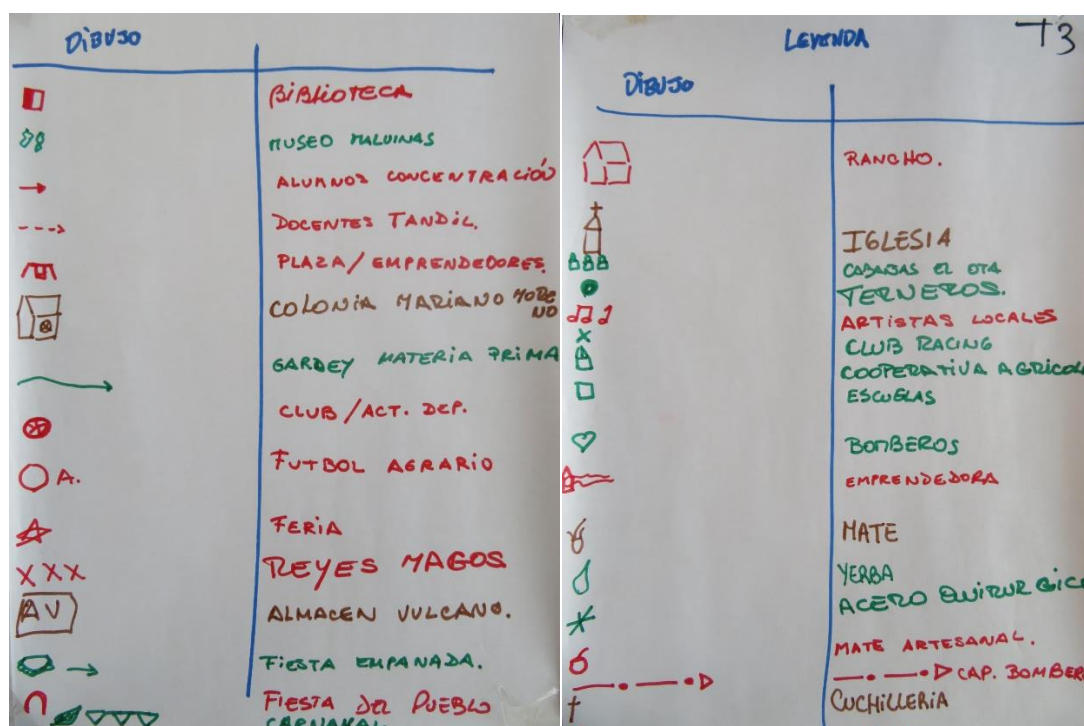 DIBUJO
BIBLIOTECA
MUSEO MALVINAS
ALUMNOS CONCENTRACIÓN
DOCENTES TANDIL.
PLAZA/EMPRENDEDORES.
COLONIA MARIANO MORE
NO
GARDEY MATERIA PRIMA
CLUB/ACT. DEP.
A.
FUTBOL AGRARIO
FERIA
XXX
REYES MAGOS
AV
ALMACEN VULCANO.
FIESTA EMPANADA.
FIESTA DEL PUEBLO
CARNAVAL
LEYENDA
T3
DIBUJO
RANCHO.
IGLESIA
CABAÑAS EL OTA
TERNEROS.
ARTISTAS LOCALES
X
CLUB RACING
COOPERATIVA AGRICOL
ESCUELAS
BOMBEROS
EMPRENDEDORA
MATE
YERBA
ACERO QUIRURGIC
MATE ARTESANAL.
CAP. BOMBER
CUCHILLERIA